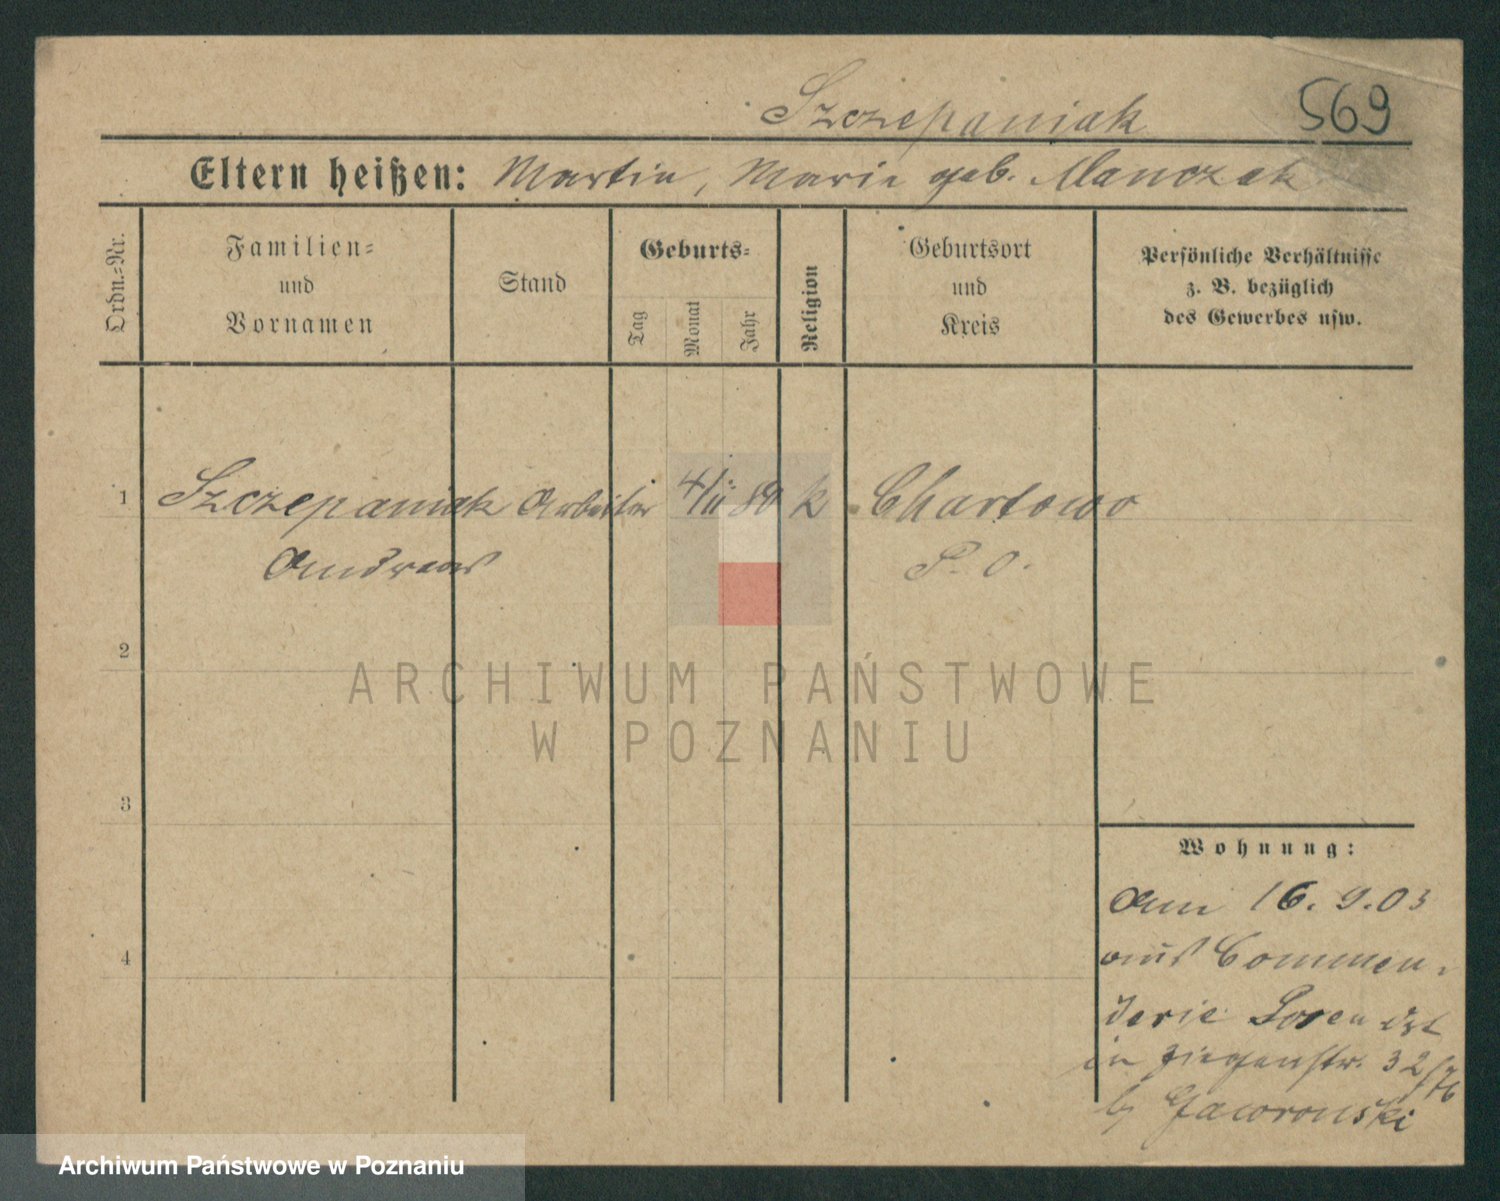 Szczepaniak
569
Eltern heißen: Martin, Marie geb. Manczak
Ordn.-Nr.
Familien-
und
Vornamen
Stand
Geburts-
Tag
Monat
Jahr
Religion
Geburtsort
und
Kreis
Persönliche Verhältnisse
z. B. bezüglich
des Gewerbes usw.
1 Szczepaniak Arbeiter 4/11 80 k Chartowo
Andreas P. O.
2
3
4
Wohnung:
Am 16. 9. 03
aus Commen-
derie
in Ziegenstr. 32/76
b/ Jaworonski
ARCHIWUM PAŃSTWOWE
W POZNANIU
Archiwum Państwowe w Poznaniu